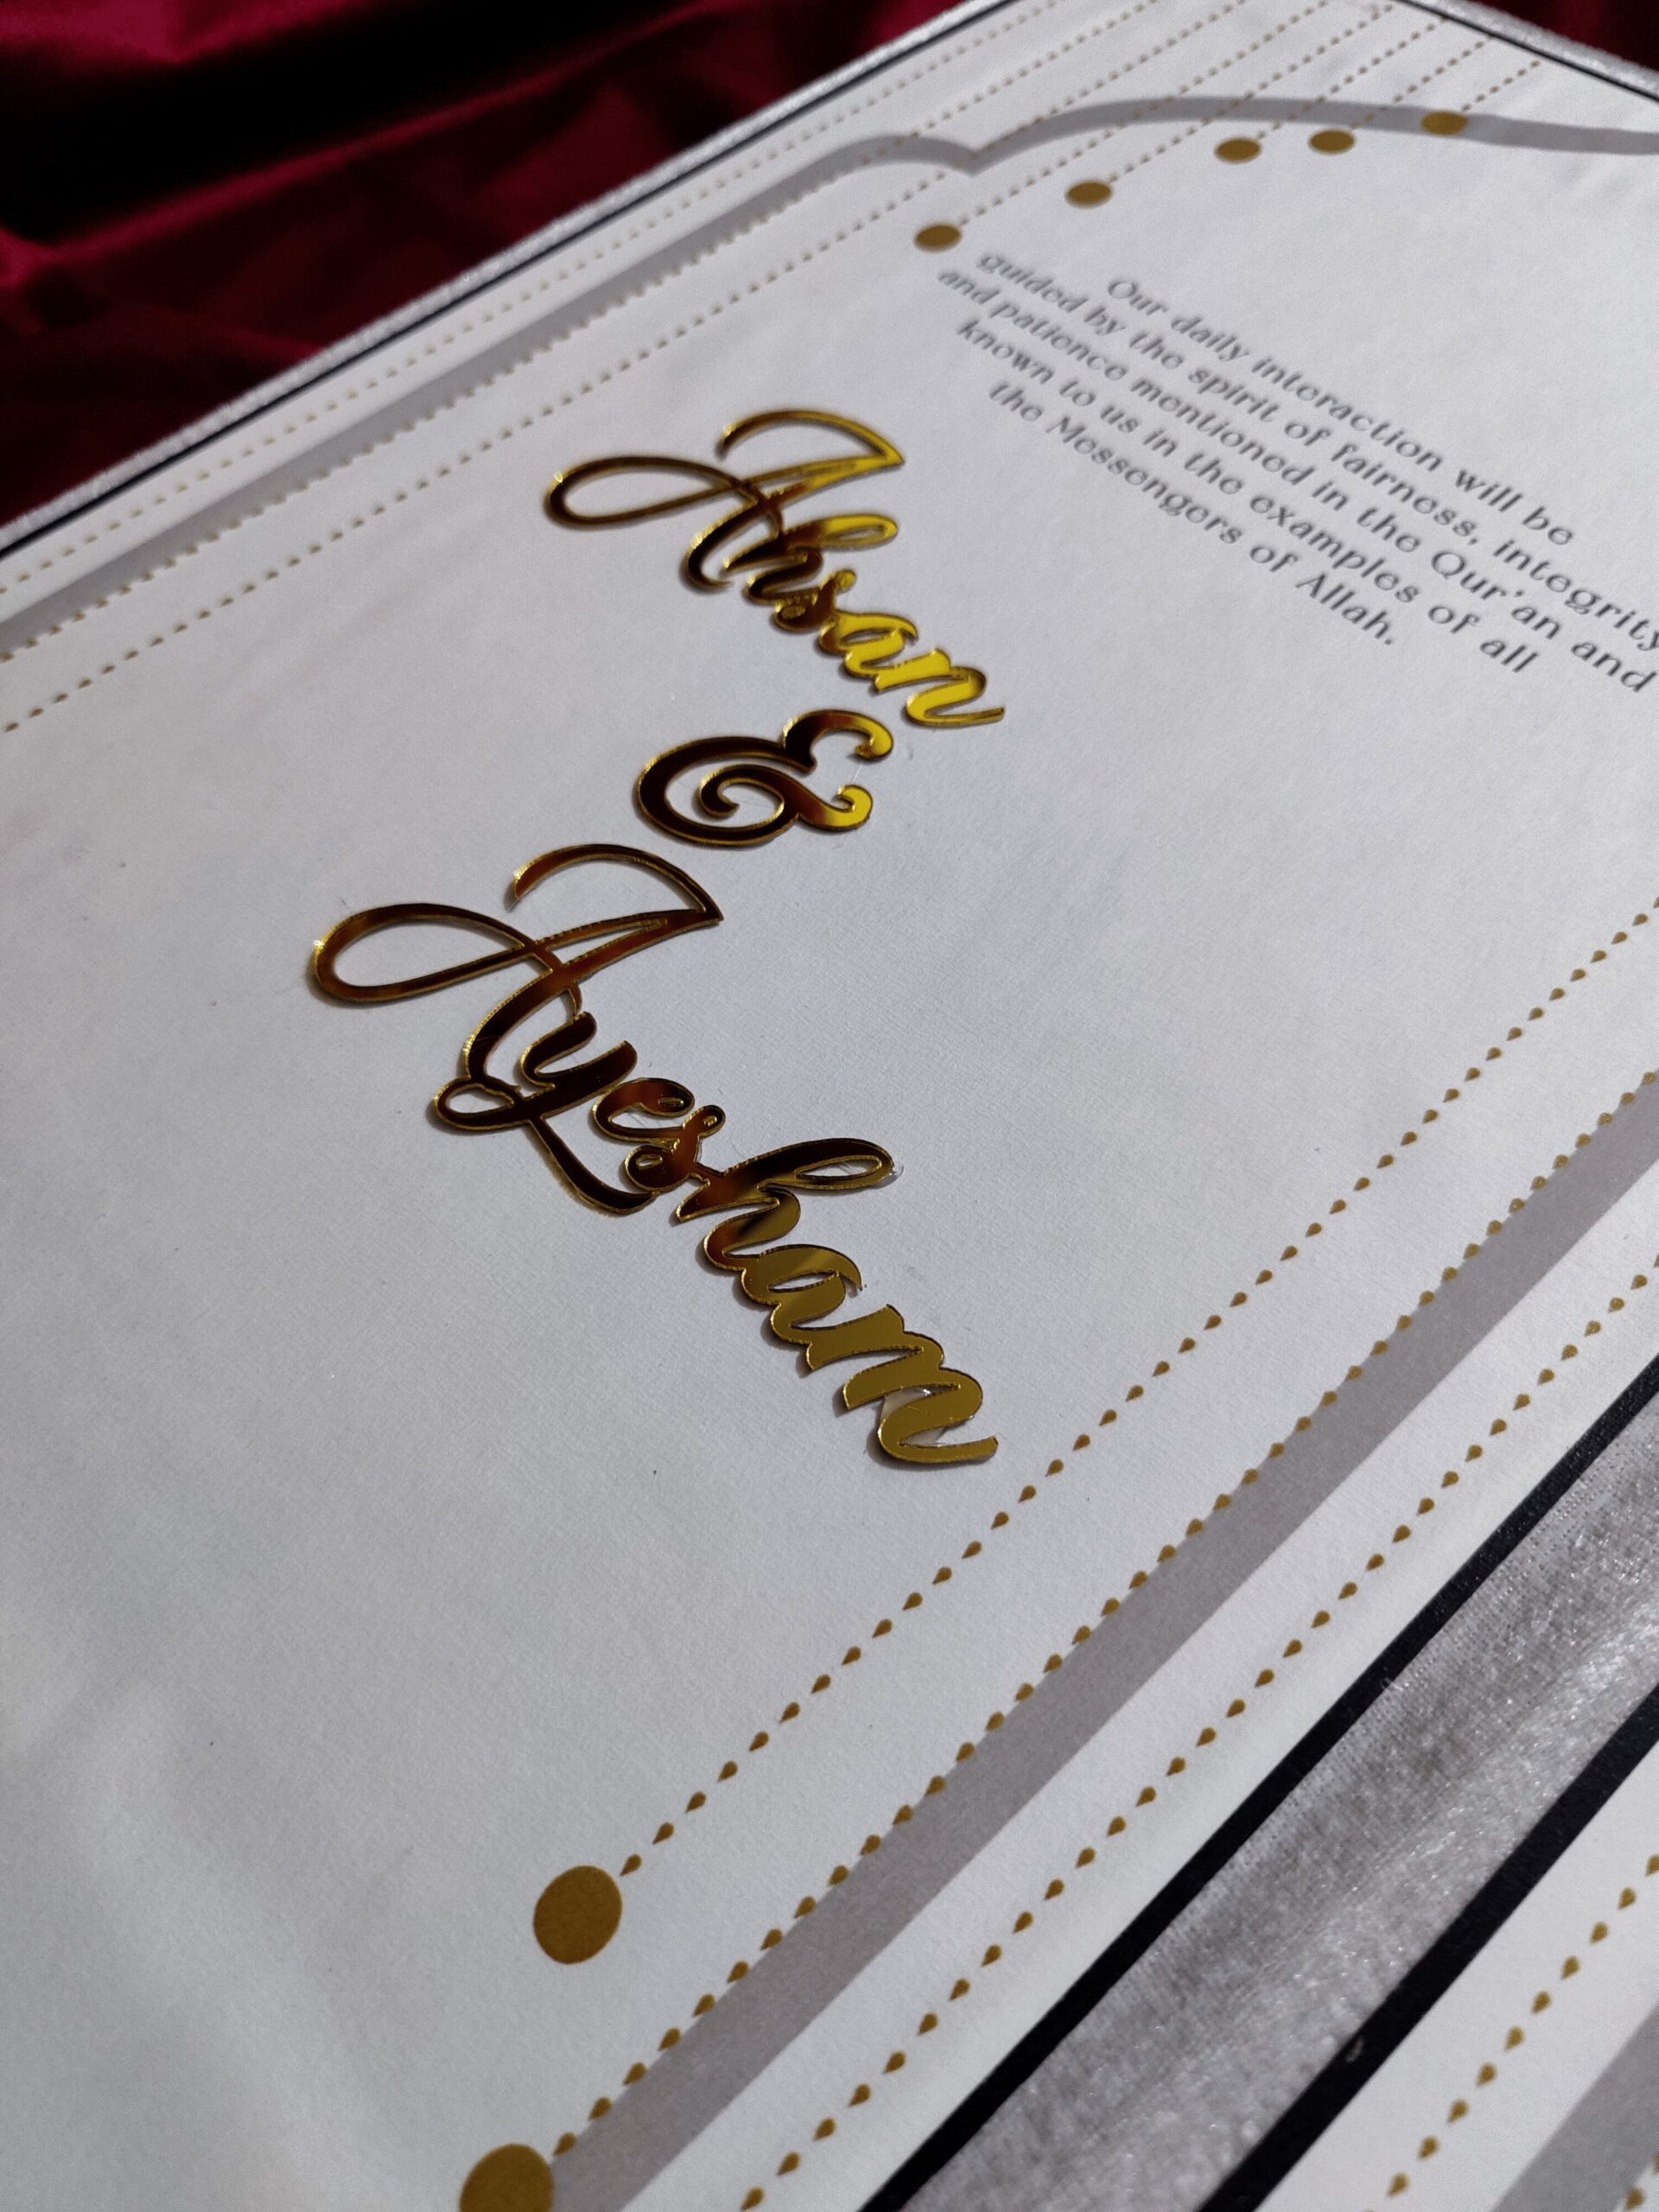 Our daily interaction will be
guided by the spirit of fairness, integrity
and patience mentioned in the Qur'an and
known to us in the examples of all
the Messengers of Allah.
Ahsan
&
Ayesham